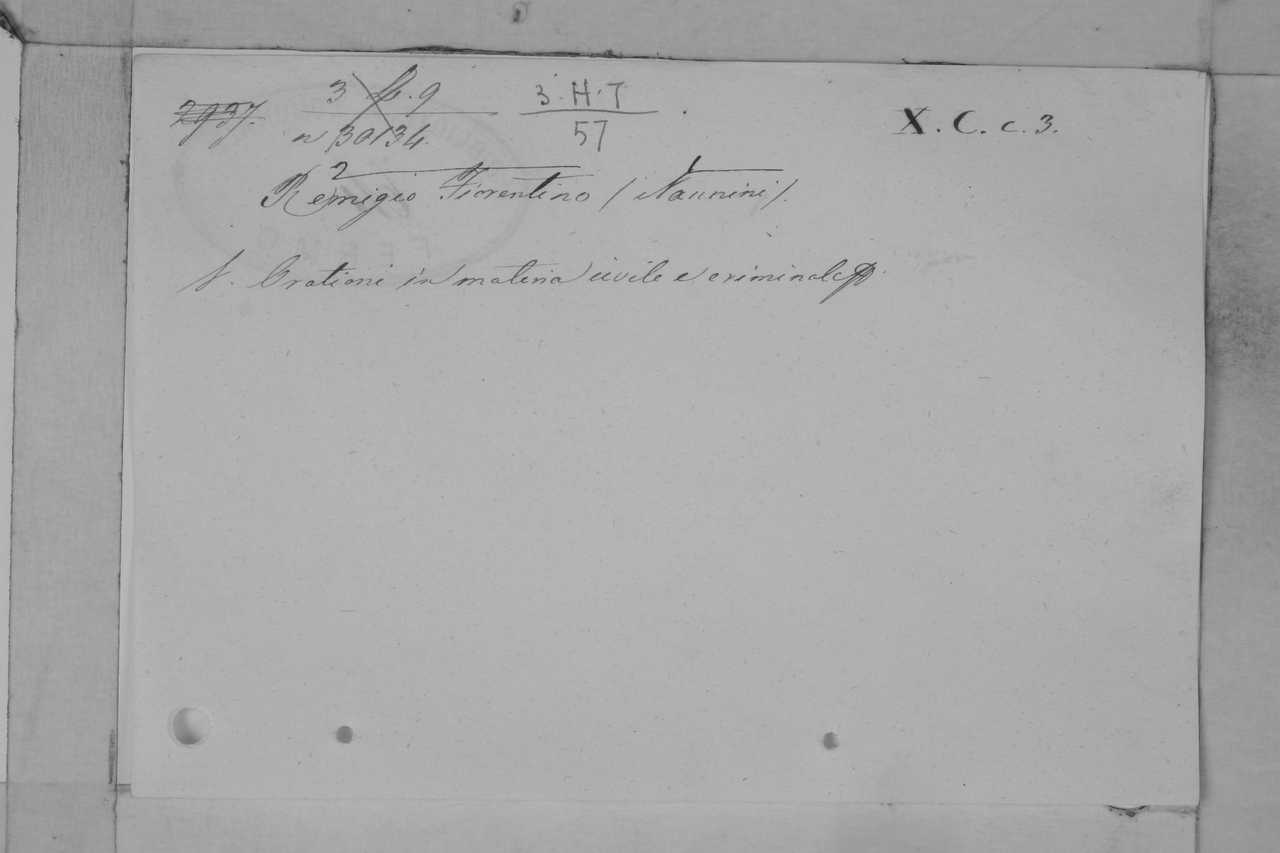 2937. 3 fb. 9 3.H.T X. C. c. 3.
n 30134. 57
2 1
Remigio Fiorentino / Nannini /.
1. Orationi in materia civile e criminale